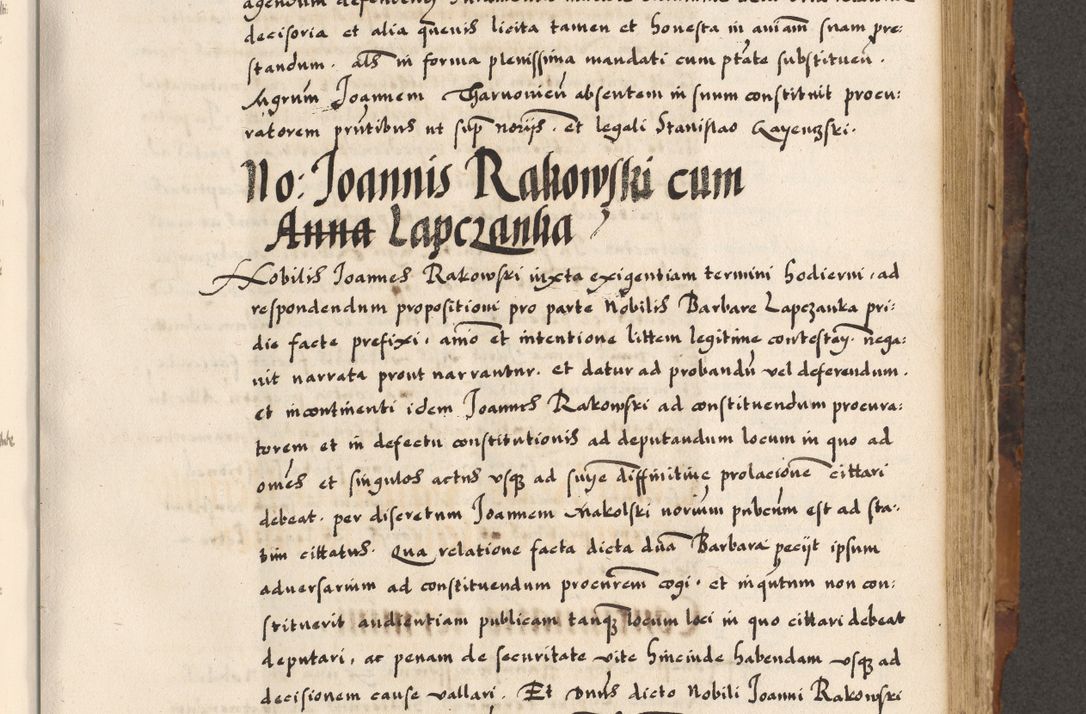 decisoria et alia quevis licita tamen et honesta in aniam suam pre:
standum. als in forma plenissima mandati cum ptate substituen.
Mgrum Joannem Tharnovien absentem in suum constituit procu:
ratorem prntibus ut sup norijs. et legali Stanislao
No: Joannis Rakowski cum
Anna Lapczanka
Nobilis Joannes Rakowski iuxta exigentiam termini hodierni, ad
respondendum propositioni pro parte Nobilis Barbare Lapczanka pri:
die facte prefixi, amo et intentione littem legitime contestan. nega:
vit narrata prout narrantur. et datur ad probandu vel deferendum.
et incontinenti idem Joannes Rakowski ad constituendum procura:
torem et in defectu constitutionis ad deputandum locum in quo ad
omes et singulos actus usq ad snie diffinitive prolacione cittari
debeat. per discretum Joannem Makolski norium pubcum est ad sta:
tim cittatus. Qua relatione facta dicta dna Barbara pecijt ipsum
adversarium ad constituendum procurem cogi. et inqutum non con:
stituerit audientiam publicam tanq locum loci in quo cittari debeat
deputari, ac penam de securitate vite hincinde habendam usq ad
decisionem cause vallari. Et Dnus dicto Nobili Joanni Rakowski